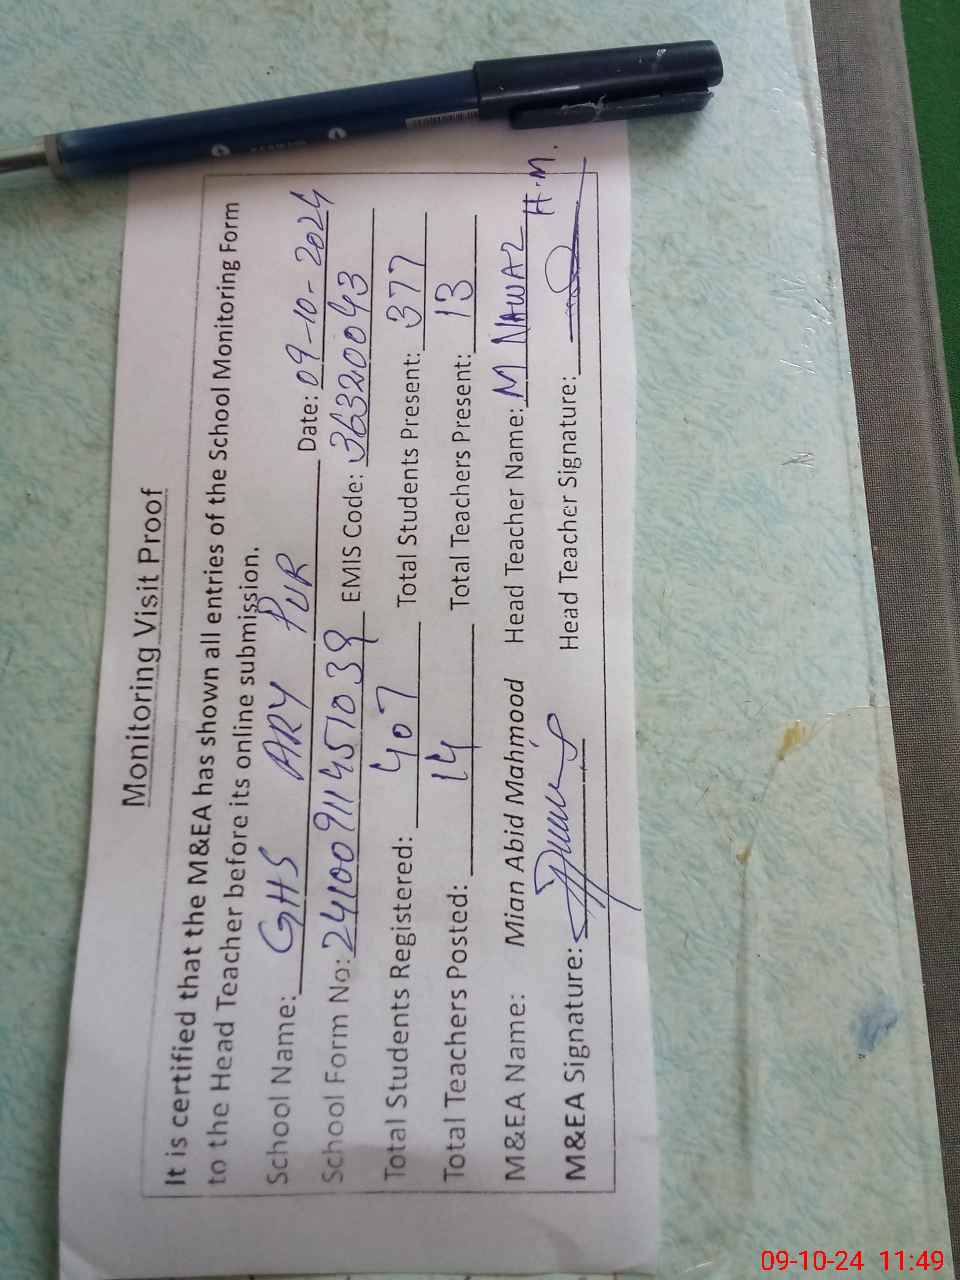 Monitoring Visit Proof
It is certified that the M&EA has shown all entries of the School Monitoring Form
to the Head Teacher before its online submission.
School Name: GHS ARY PUR Date: 09-10-2024
School Form No: 241009114571039 EMIS Code: 36320043
Total Students Registered: 407 Total Students Present: 377
Total Teachers Posted: 14 Total Teachers Present: 13
M&EA Name: Mian Abid Mahmood Head Teacher Name: M NAWAZ H.M.
M&EA Signature: Head Teacher Signature:
09-10-24 11:49